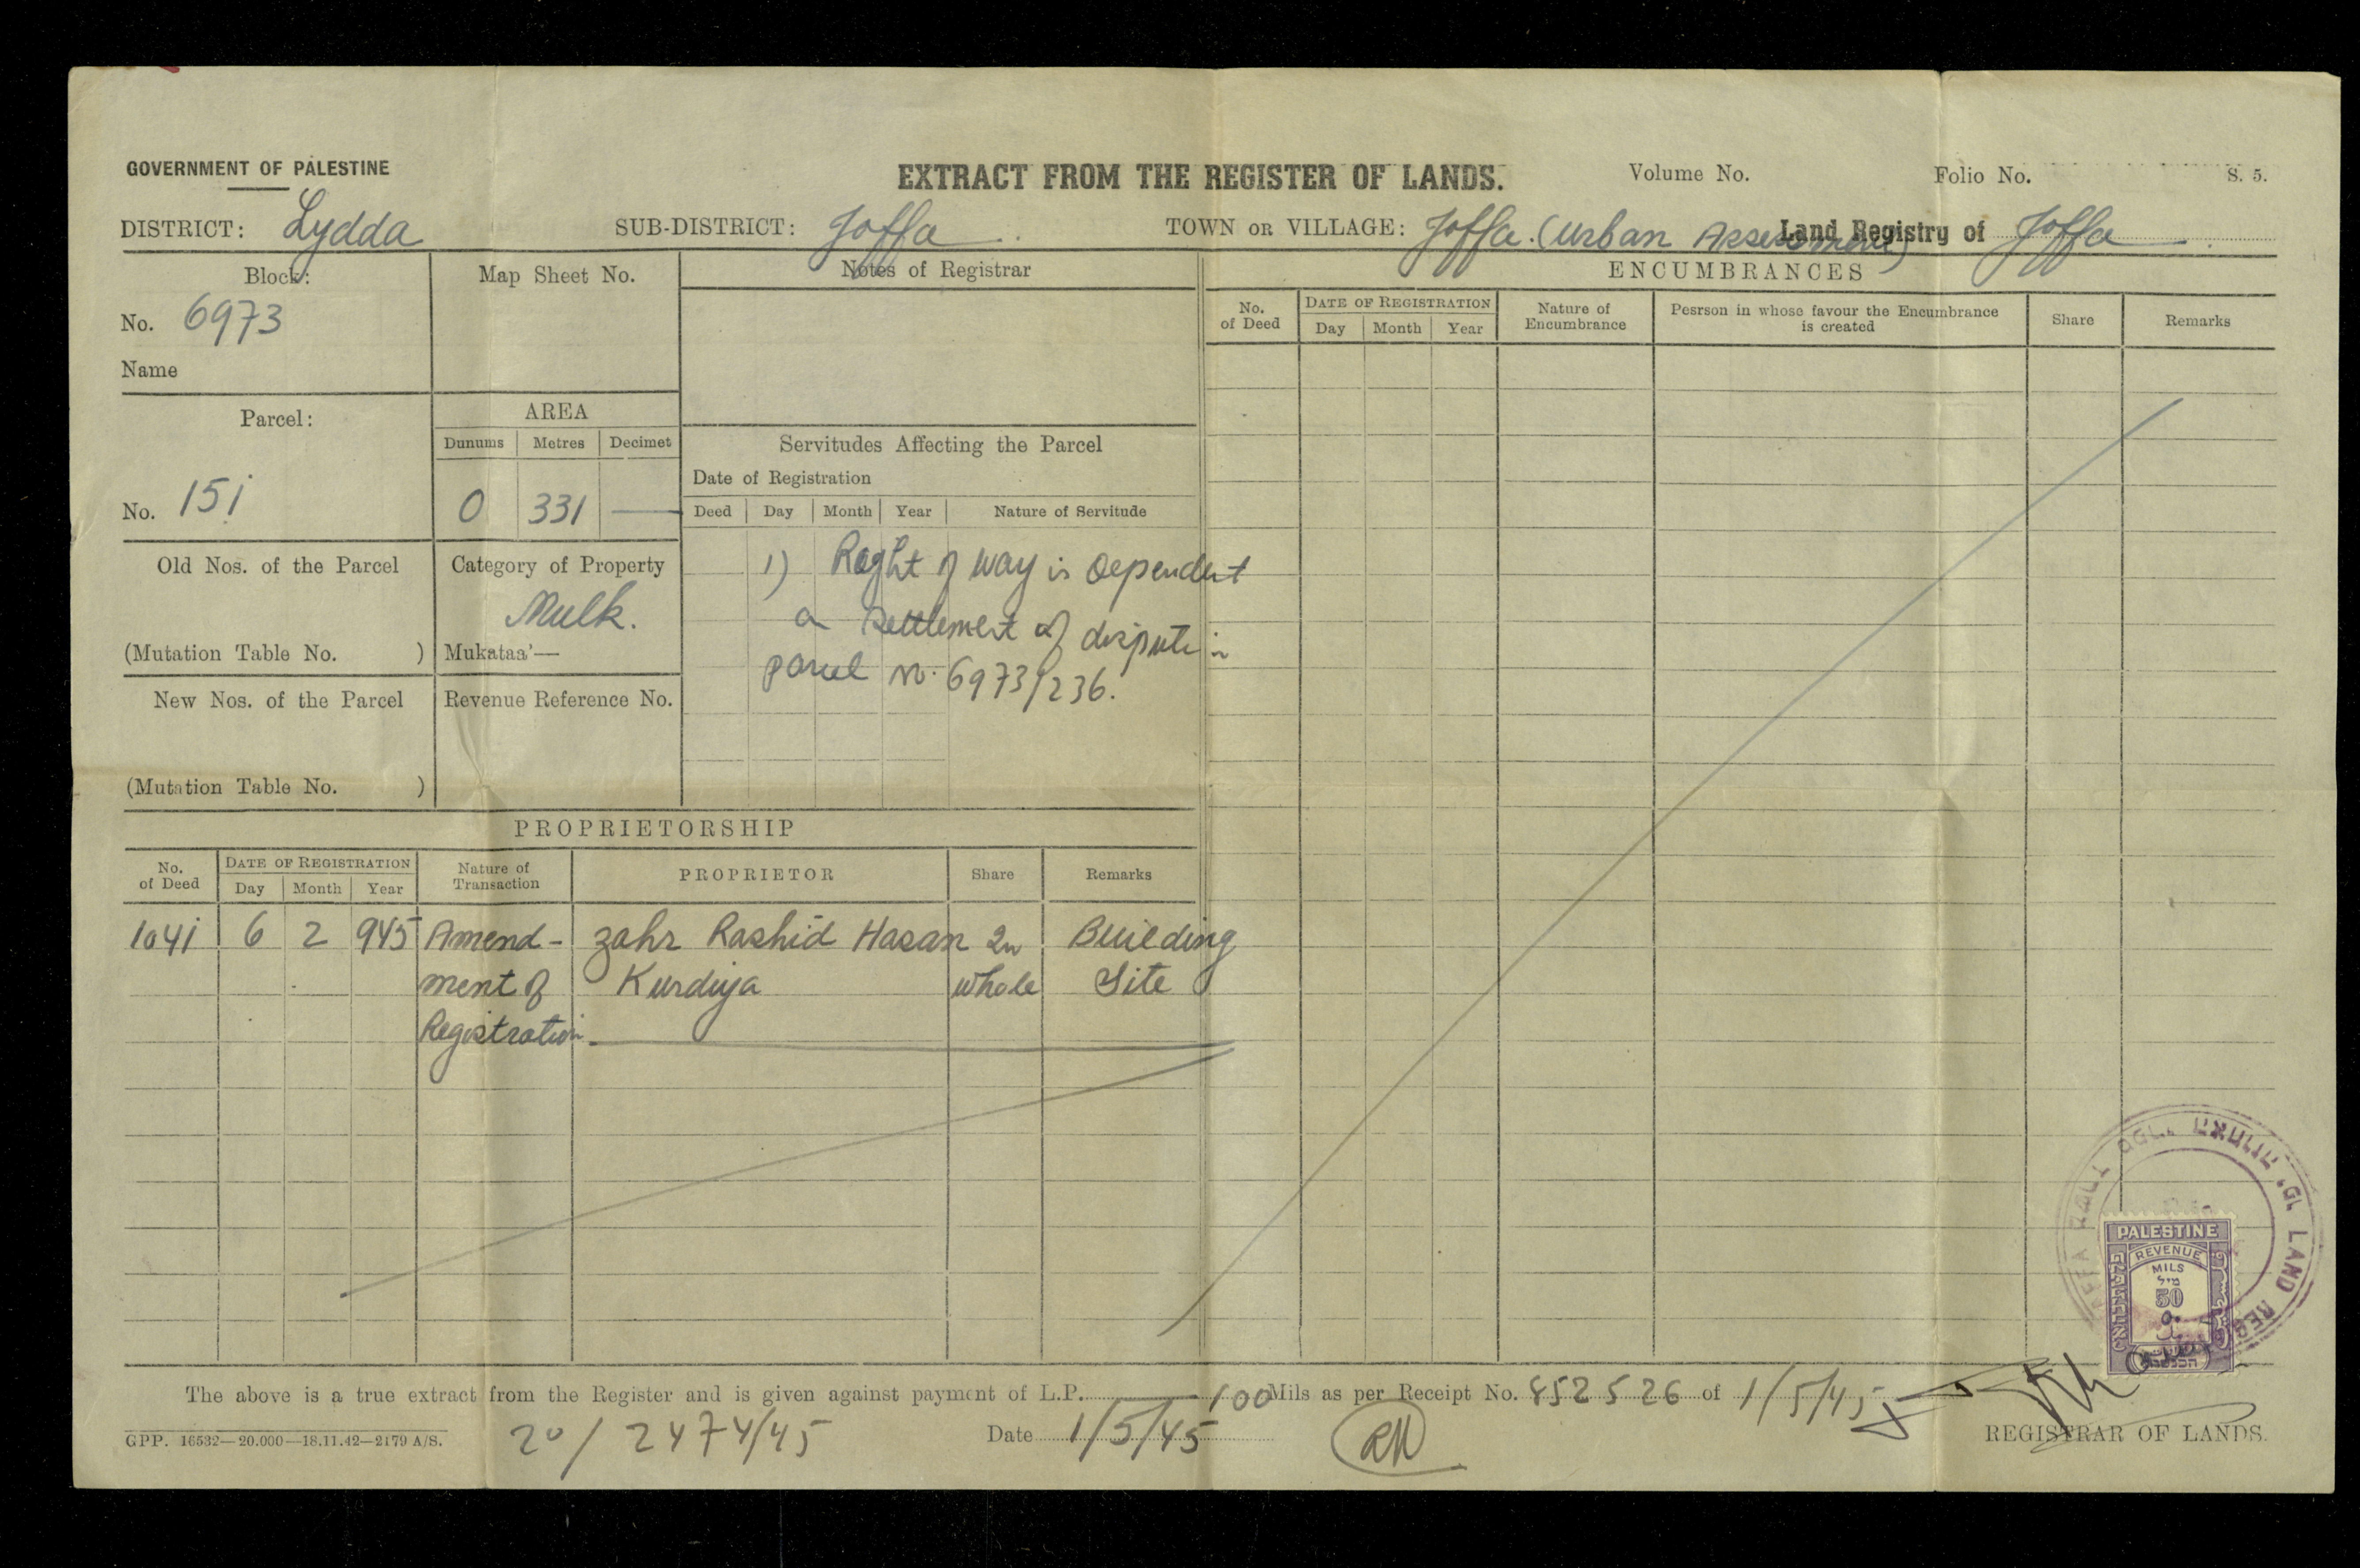 GOVERNMENT OF PALESTINE
EXTRACT FROM THE REGISTER OF LANDS.
Volume No.
Folio No.
S. 5.
DISTRICT: Lydda
SUB-DISTRICT: Joffa
TOWN OR VILLAGE: Joffa (Urban Assessment)
Land Registry of Joffa
Block:
No. 6973
Name
Map Sheet No.
Notes of Registrar
Parcel:
No. 151
AREA
Dunums Metres Decimet
0 331 —
Servitudes Affecting the Parcel
Date of Registration
Deed Day Month Year Nature of Servitude
1) Right of way is dependent
a settlement of dispute in
parcel No. 6973/236.
Old Nos. of the Parcel
(Mutation Table No. )
Category of Property
Mulk.
Mukataa'—
New Nos. of the Parcel
(Mutation Table No. )
Revenue Reference No.
PROPRIETORSHIP
No. of Deed
DATE OF REGISTRATION
Day Month Year
Nature of Transaction
PROPRIETOR
Share
Remarks
1041 6 2 945 Amend- zahr Rashid Hasan In Building
ment of Kurdiya whole Site
Registration
ENCUMBRANCES
No. of Deed
DATE OF REGISTRATION
Day Month Year
Nature of Encumbrance
Pesrson in whose favour the Encumbrance
is created
Share
Remarks
PALESTINE
REVENUE
MILS
מיל
50
LAND REG
The above is a true extract from the Register and is given against payment of L.P. 100 Mils as per Receipt No. 852526 of 1/5/45
GPP. 16532—20.000—18.11.42—2179 A/S.
20/2474/45
Date 1/5/45
RM
REGISTRAR OF LANDS.